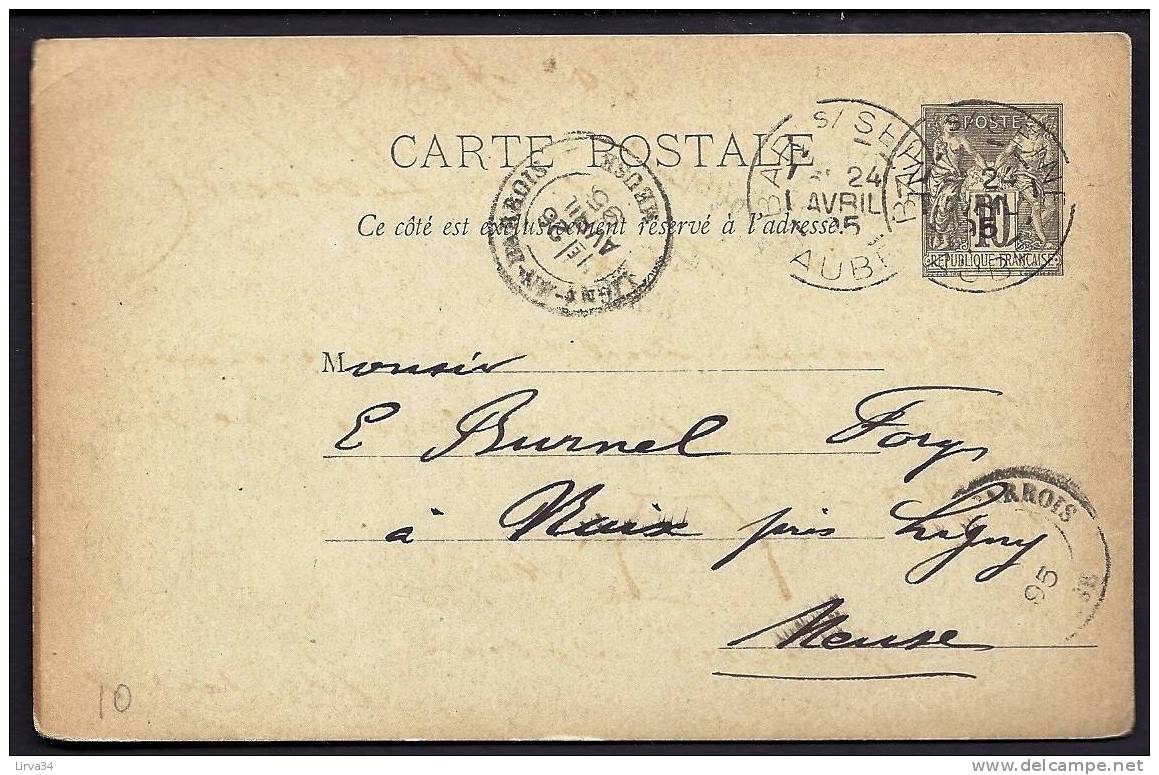 POSTES
BAR S/ SEINE
24
AVRIL
95
AUBE
10
REPUBLIQUE FRANCAISE
CARTE POSTALE
LIGNY-EN-BARROIS
25
AVRIL
95
MEUSE
Ce côté est exclusivement réservé à l'adresse.
Monsieur
E Burnel Forges
à Naix près Ligny
Meuse
BARROIS
95
10
Lirva34
delcampe.net